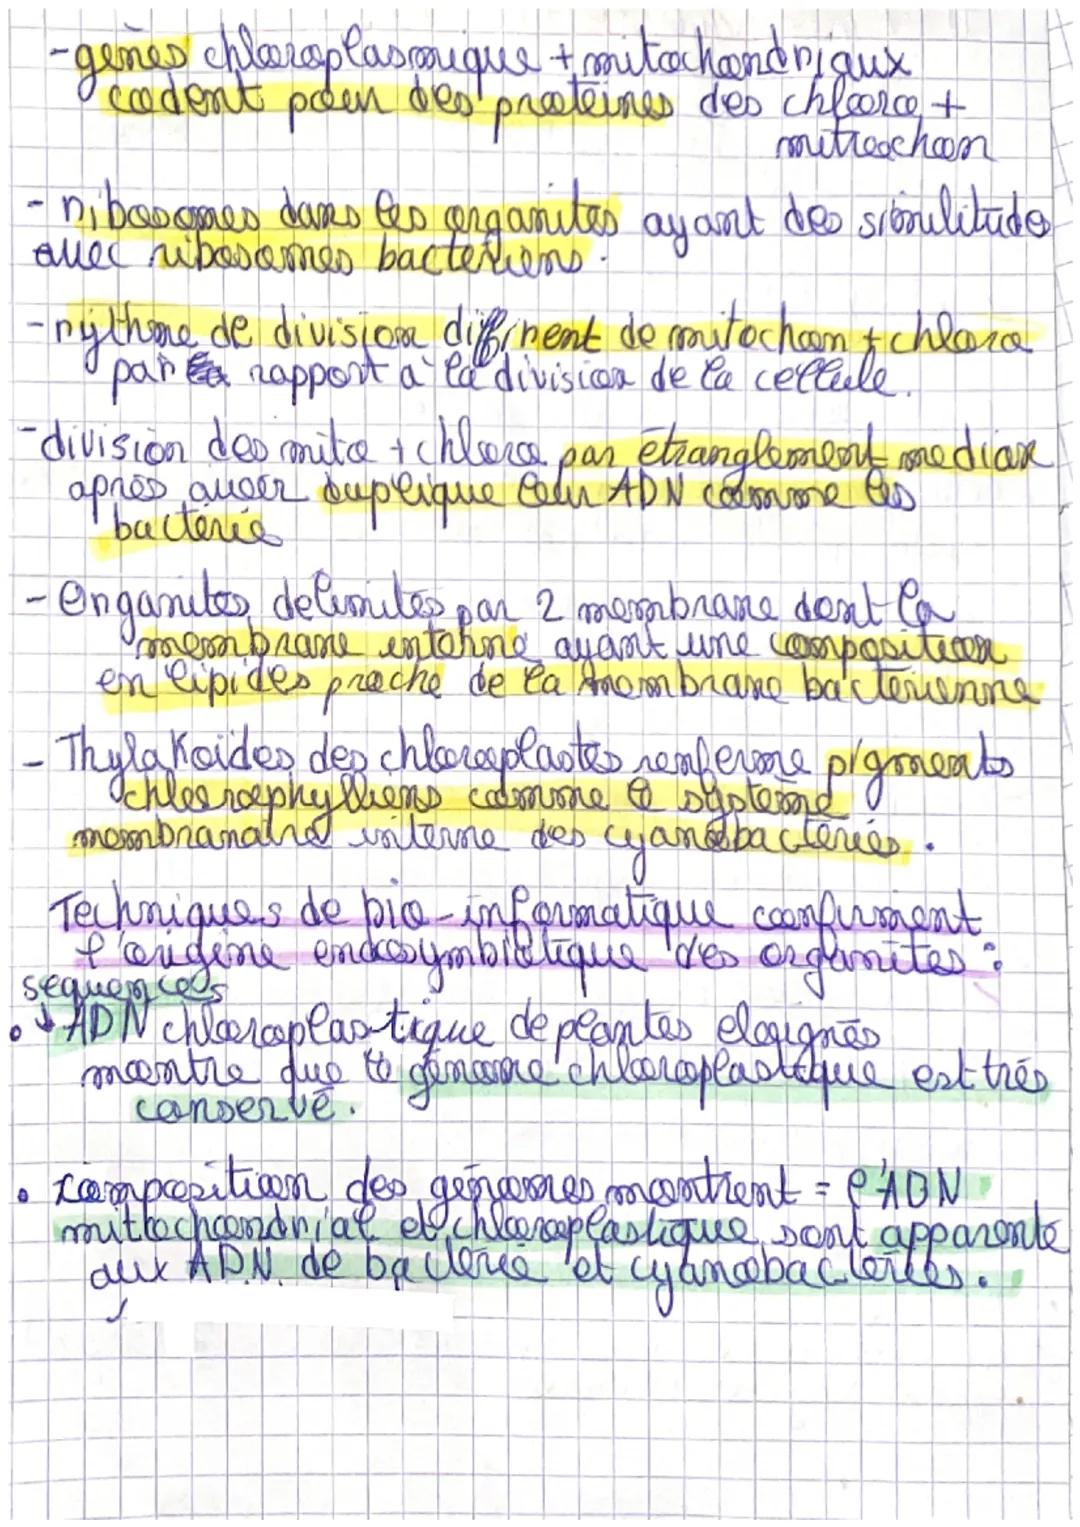 - gènes chloroplasmique + mitochondriaux
codent pour des protéines des chloro +
mitochon
- ribosomes dans les organites ayant des similitudes
avec ribosomes bactériens.
- rythme de division différent de mitochon + chloro
par rapport à la division de la cellule.
- division des mito + chloro par étranglement median
après avoir duplique leur ADN comme les
bactérie
- Organites delimités par 2 membrane dont la
membrane interne ayant une composition
en lipides proche de la membrane bactérienne
- Thylakoïdes des chloroplastes renferme pigments
chlorophylliens comme le système
membranaire interne des cyanobactéries.
Techniques de bio-informatique confirment
l'origine endosymbiotique des organites :
séquences
• ↓ ADN chloroplastique de plantes éloignés
montre que le génome chloroplastique est très
conservé.
• composition des génomes montrent = l'ADN
mittochondrial et chloroplastique sont apparente
aux ADN de bactérie et cyanobactéries.